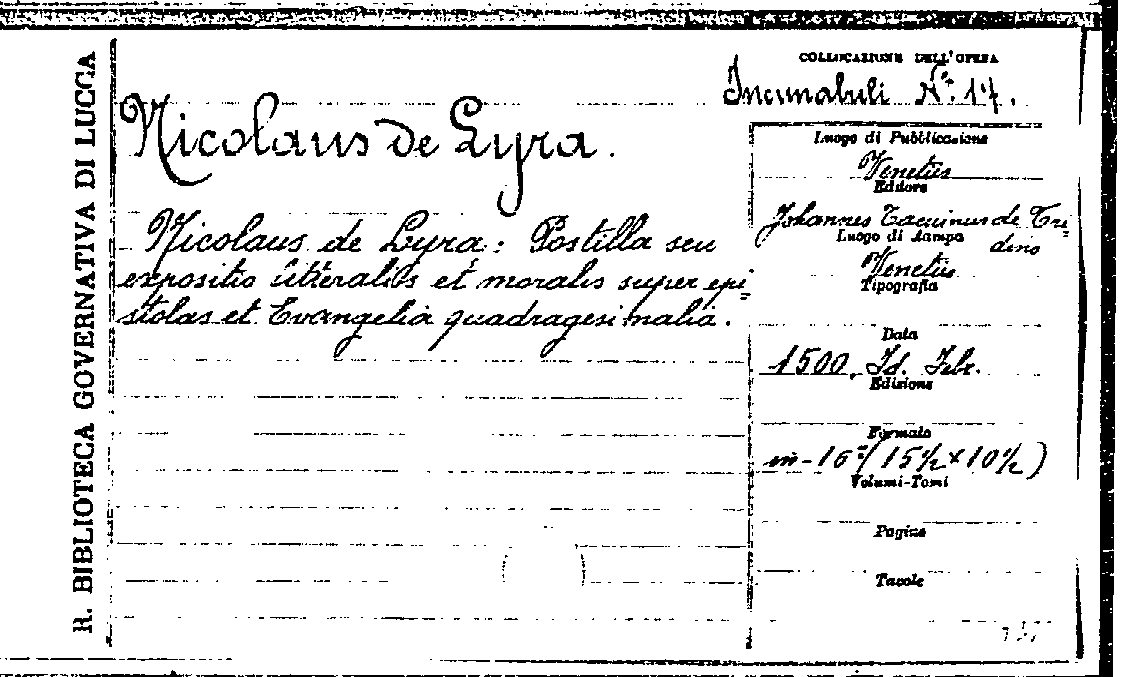 R. BIBLIOTECA GOVERNATIVA DI LUCCA
COLLOCAZIONE DELL'OPERA
Incunabuli N.º 17.
Nicolaus de Lyra.
Nicolaus de Lyra: Postilla seu
expositio litteralis et moralis super epi=
stolas et Evangelia quadragesimalia.
Luogo di Pubblicazione
Venetiis
Editore
Johannes Tacuinus de Tri=
dino
Luogo di stampa
Venetiis
Tipografia
Data
1500, Id. Febr.
Edizione
Formato
in-16º (15½ × 10½)
Volumi-Tomi
Pagine
Tavole